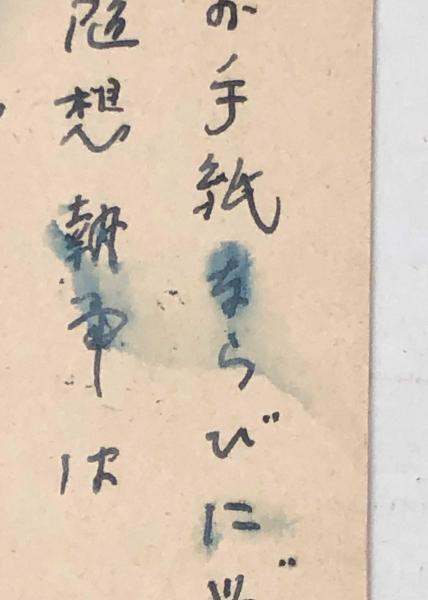 お手紙ならびに
随想執筆は